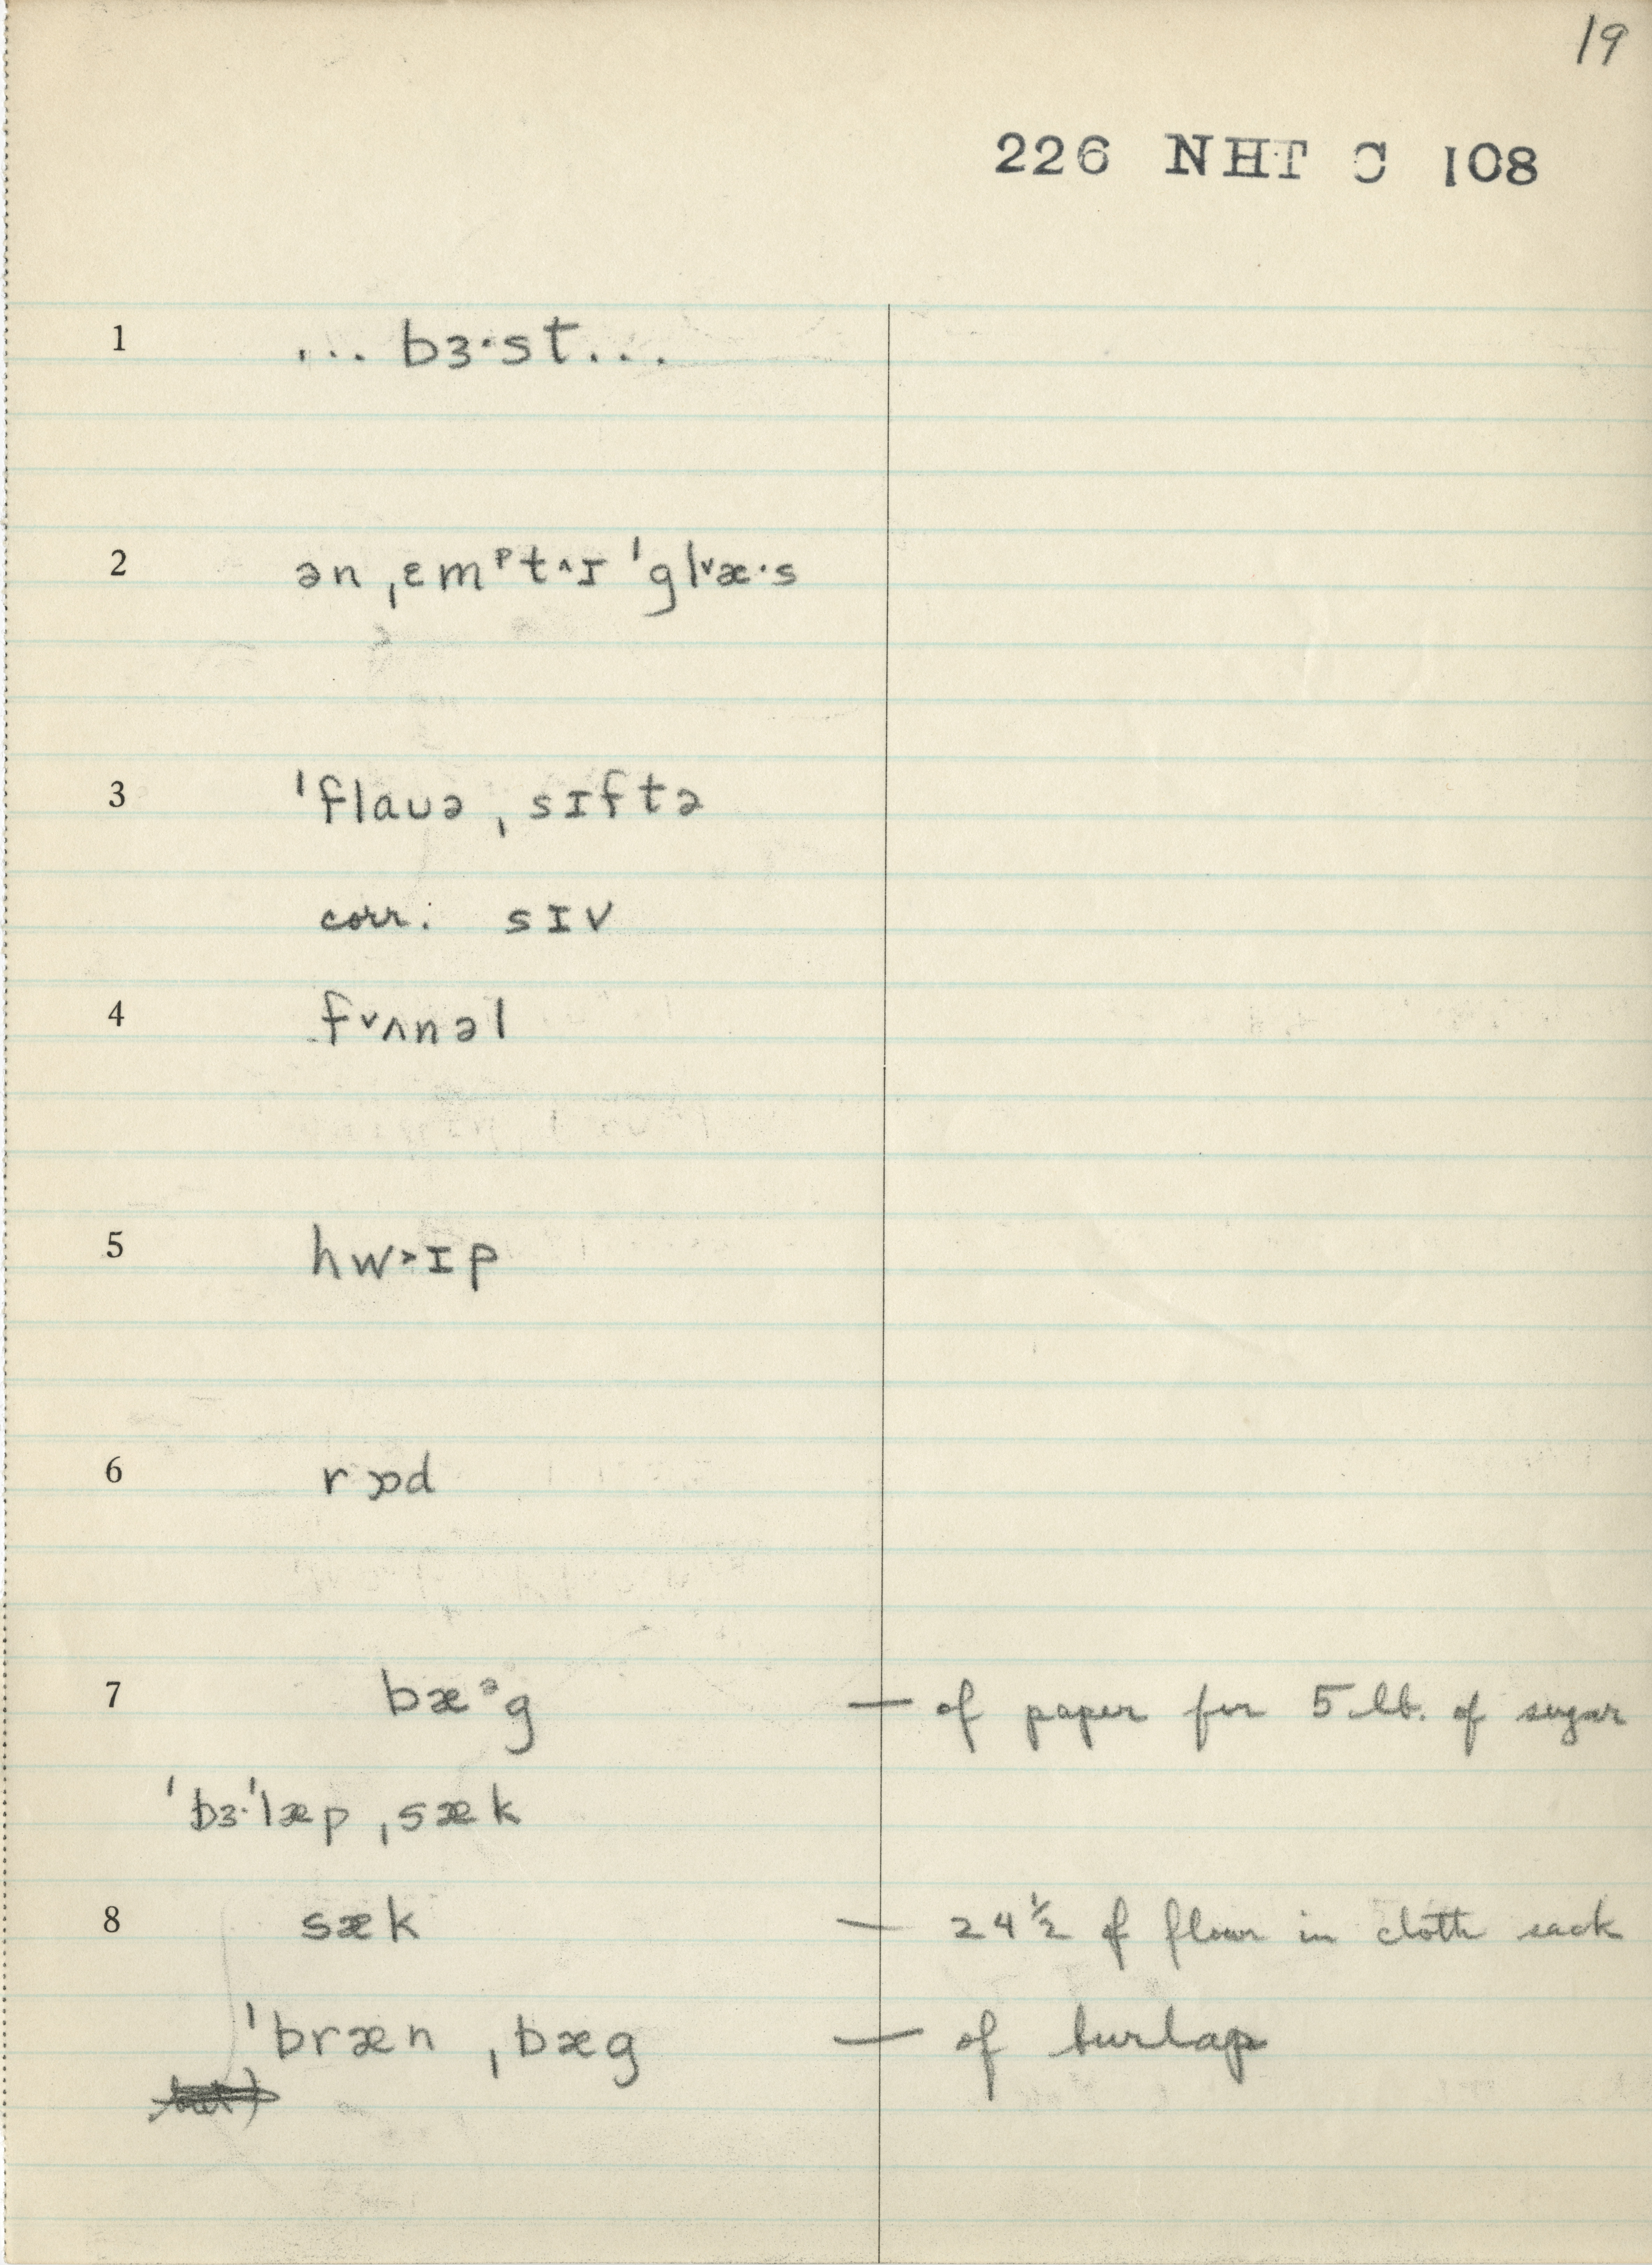 19
226 NHT C 108
1 ... bɜ·st ...
2 ən ˌɛmᵖt˄ɪ ˈgl˅æ·s
3 ˈflaʊə ˌsɪftə
corr. sɪv
4 f˅ʌnəl
5 hw˃ɪp
6 rɒd
7 bæᵊg — of paper for 5 lb. of sugar
ˈbɜ·ˈlæp ˌsæk
8 sæk — 24½ of flour in cloth sack
ˈbræn ˌbæg — of burlap